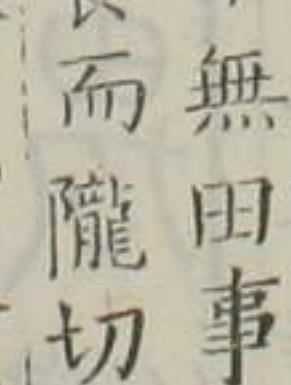 無田事
而隴切